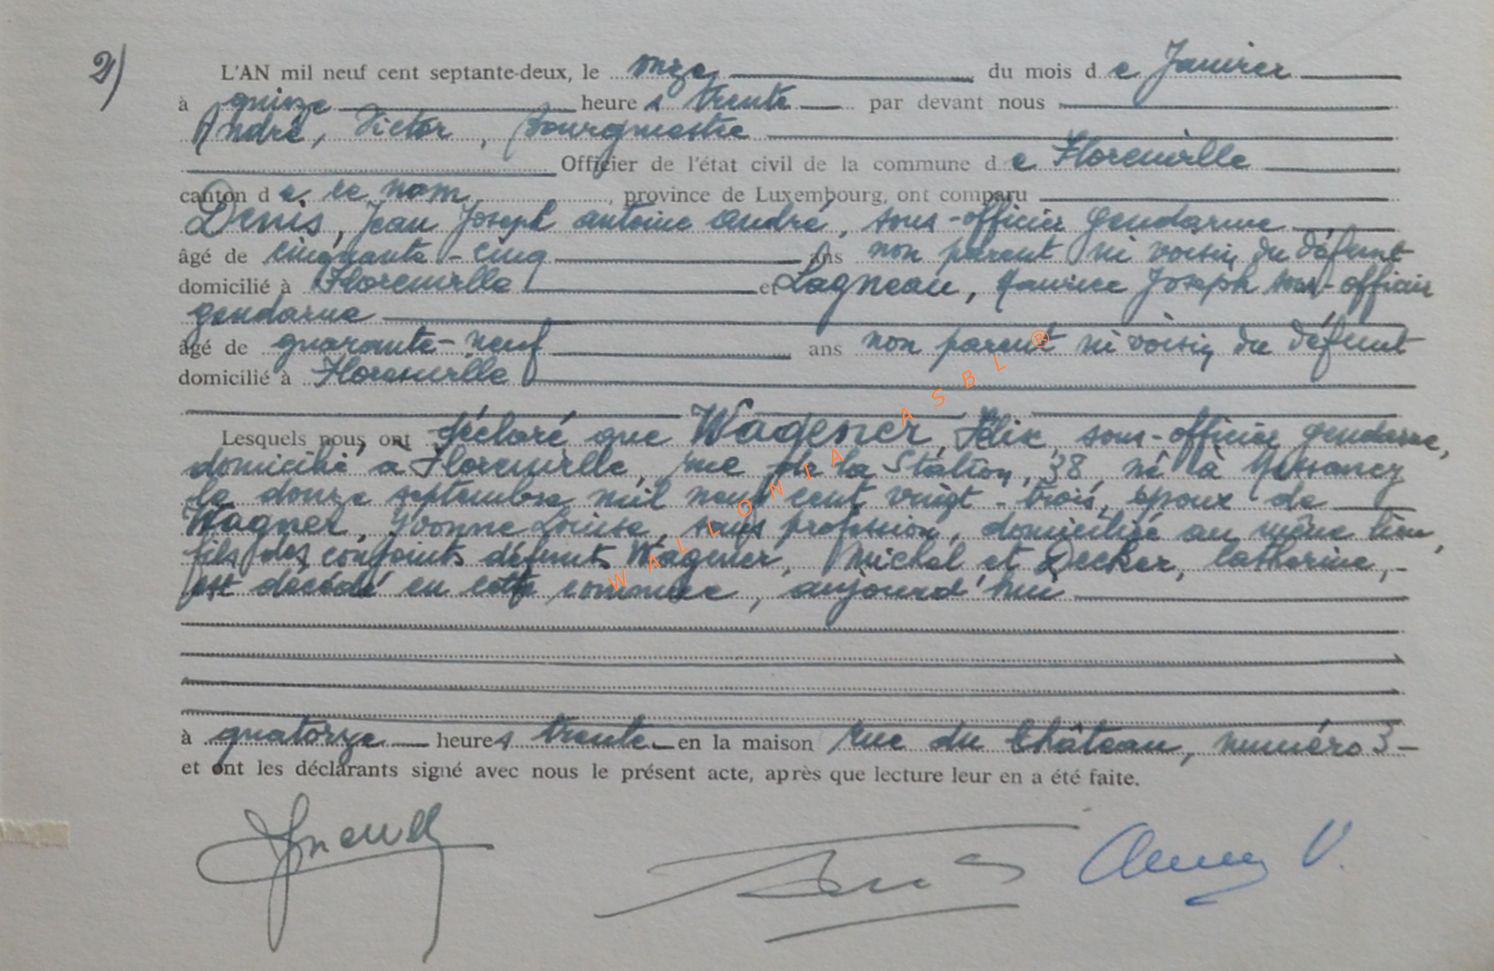 2)
L'AN mil neuf cent septante-deux, le onze du mois de Janvier
à quinze heures trente par devant nous
André, Victor, bourgmestre
Officier de l'état civil de la commune de Florenville
canton de ce nom, province de Luxembourg, ont comparu
Denis, Jean Joseph antoine andré, sous-officier gendarme
âgé de cinquante-cinq ans non parent ni voisin du défunt
domicilié à Florenville et Lagneau, Maurice Joseph sous-officier
gendarme
âgé de quarante-neuf ans non parent ni voisin du défunt
domicilié à Florenville
Lesquels nous ont déclaré que Wagener, Félix, sous-officier gendarme,
domicilié à Florenville, rue de la Station, 38 né à Messancy
le douze septembre mil neuf cent vingt-trois, époux de
Wagner, Yvonne Louise, sans profession, domiciliée au même lieu,
fils des conjoints défunts Wagener, Michel et Decker, Catherine,
est décédé en cette commune, aujourd'hui
à quatorze heures trente en la maison rue du Château, numéro 3
et ont les déclarants signé avec nous le présent acte, après que lecture leur en a été faite.
WALLONIA ASBL ®